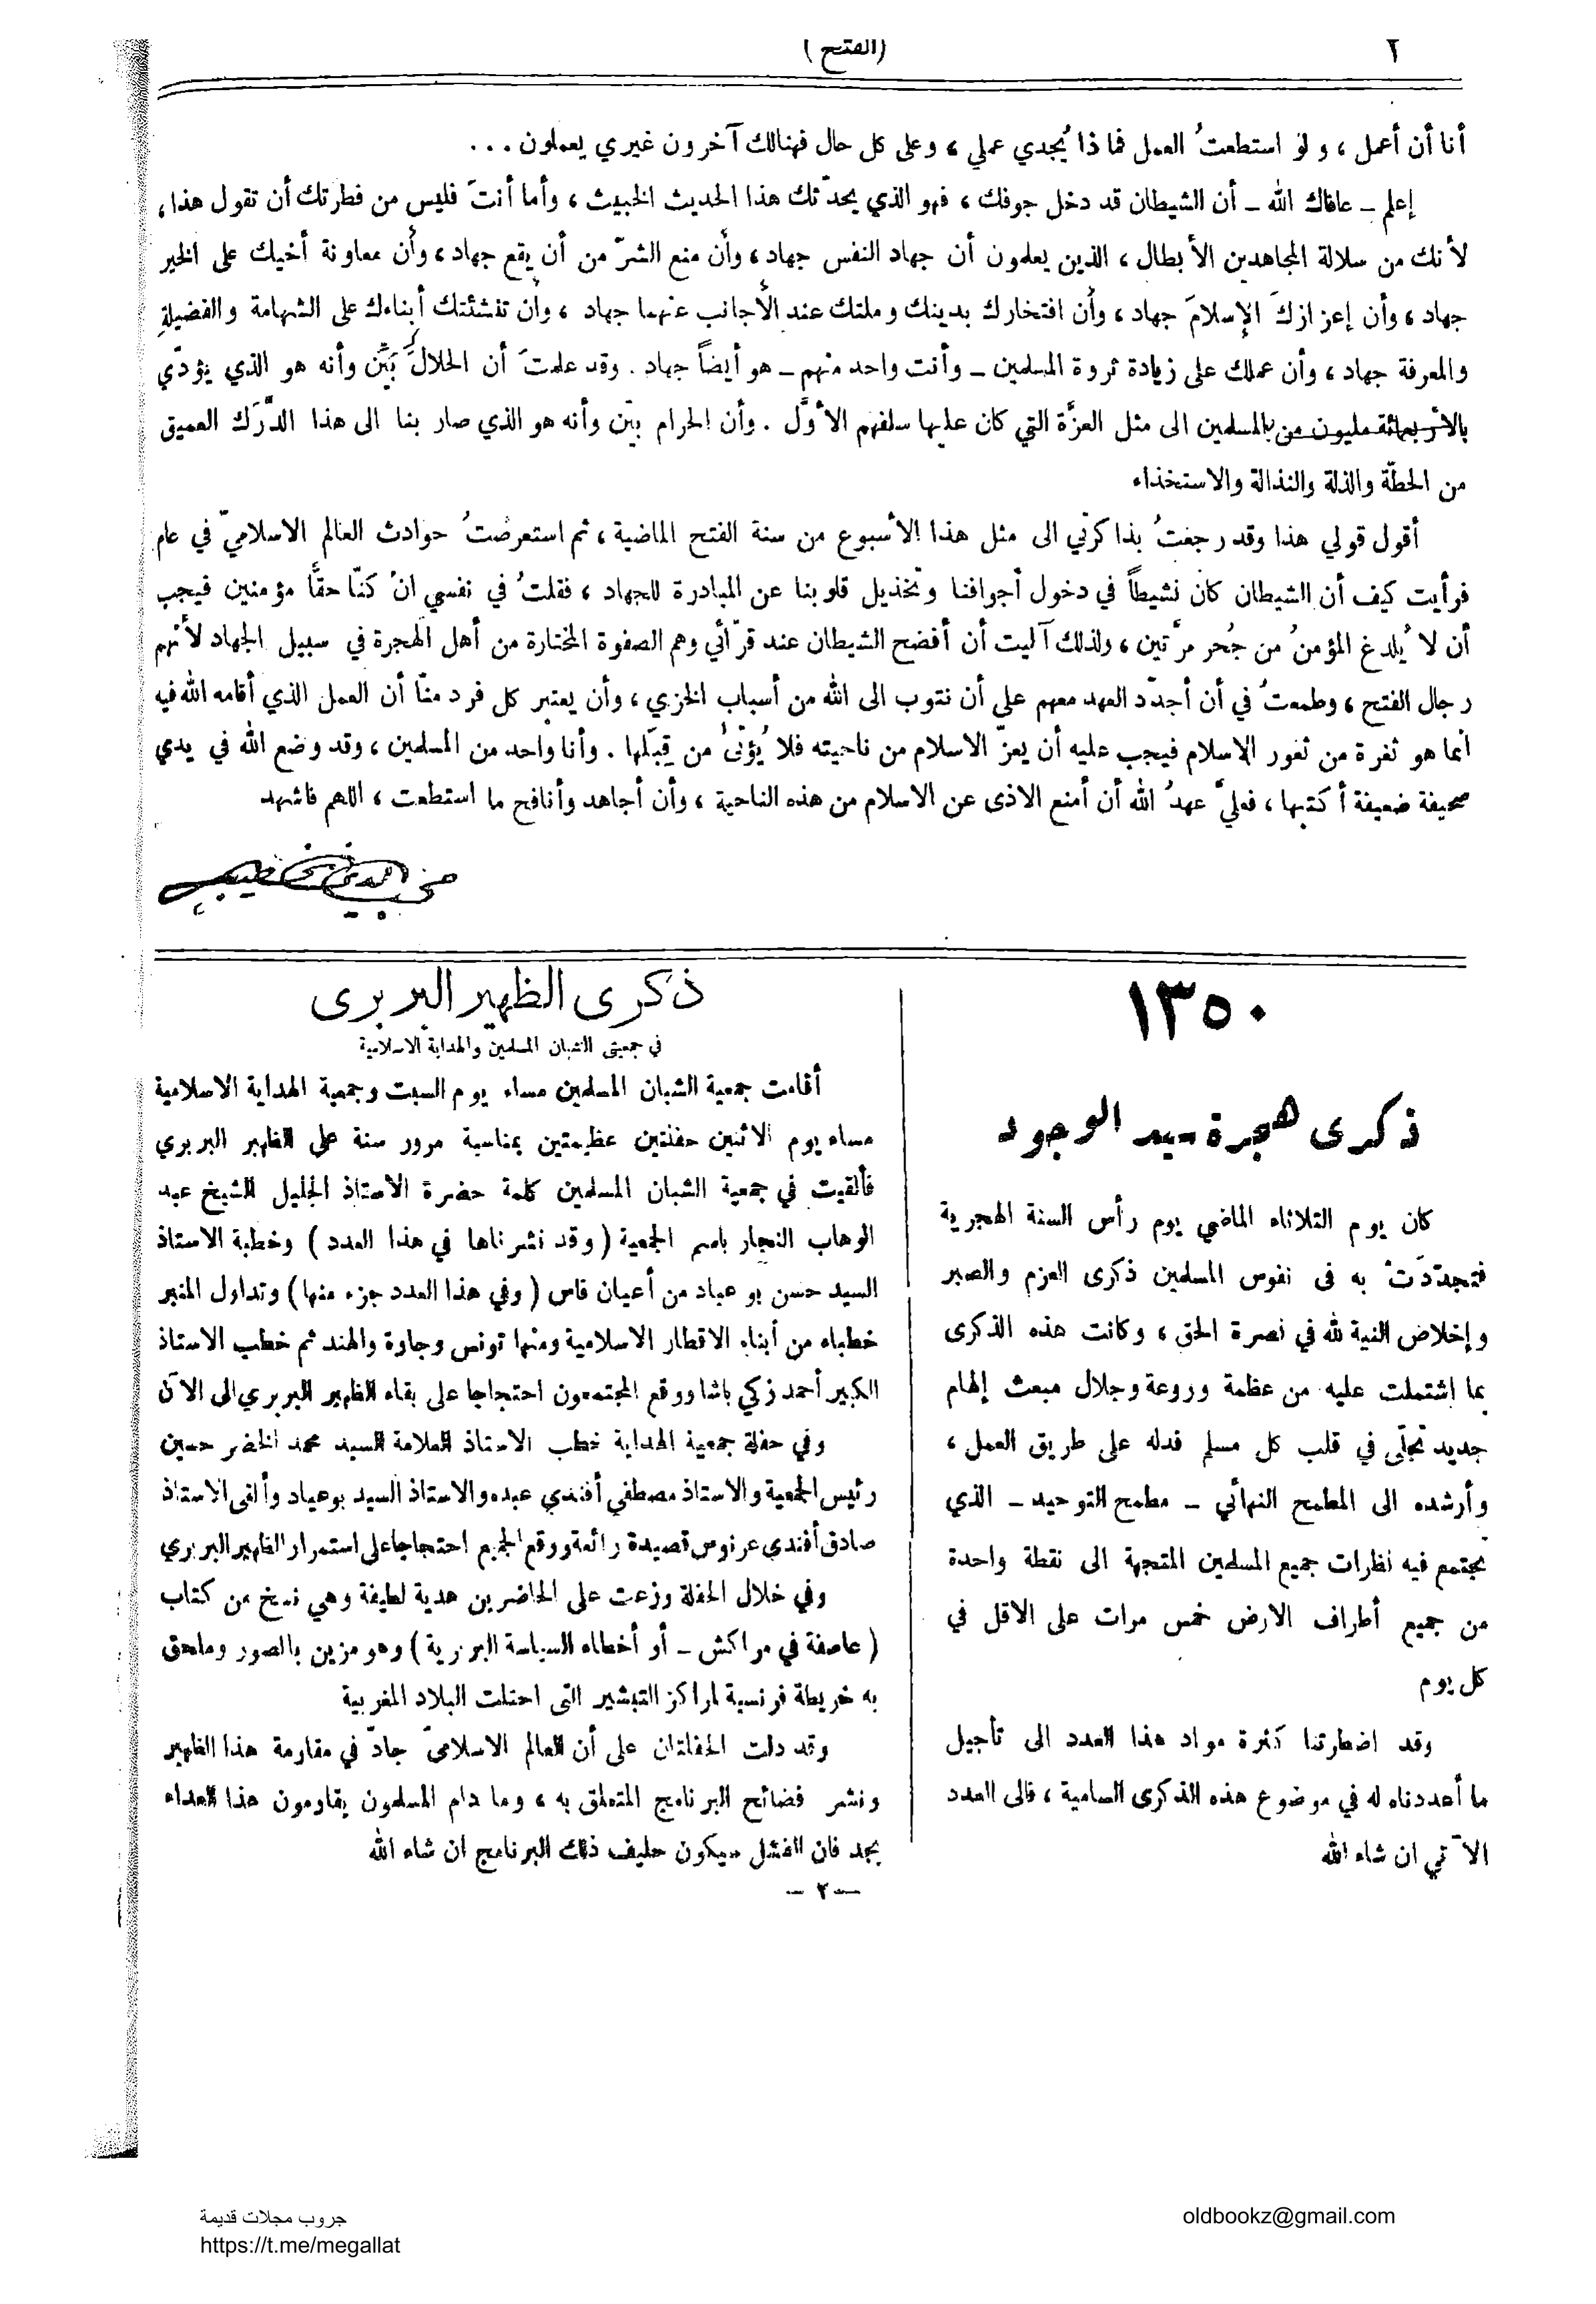 ٢
(الفتح)
أنا أن أعمل ، ولو استطعتُ العمل فماذا يُجدي عملي ، وعلى كل حال فهنالك آخرون غيري يعملون . . .
إعلم ــ عافاك الله ــ أن الشيطان قد دخل جوفك ، فهو الذي يحدّثك هذا الحديث الخبيث ، وأما أنتَ فليس من فطرتك أن تقول هذا ،
لأنك من سلالة المجاهدين الأبطال ، الذين يعلمون أن جهاد النفس جهاد ، وأن منع الشرّ من أن يقع جهاد ، وأن معاونة أخيك على الخير
جهاد ، وأن إعزازكَ الإسلامَ جهاد ، وأن افتخارك بدينك وملتك عند الأجانب عنهما جهاد ، وأن تنشئتك أبناءك على الشهامة والفضيلةِ
والمعرفة جهاد ، وأن عملك على زيادة ثروة المسلمين ــ وأنت واحد منهم ــ هو أيضاً جهاد . وقد علمتَ أن الحلال بَيِّن وأنه هو الذي يؤدّي
بالأربعمائة مليون من المسلمين الى مثل العزَّة التي كان عليها سلفهم الأوَّل . وأن الحرام بيّن وأنه هو الذي صار بنا الى هذا الدَّرَك العميق
من الحطّة والذلة والنذالة والاستخذاء
أقول قولي هذا وقد رجعتُ بذاكرتي الى مثل هذا الأسبوع من سنة الفتح الماضية ، ثم استعرضتُ حوادث العالم الاسلاميّ في عام
فرأيت كيف أن الشيطان كان نشيطاً في دخول أجوافنا وتخذيل قلوبنا عن المبادرة للجهاد ، فقلتُ في نفسي انْ كنّا حقًّا مؤمنين فيجب
أن لا يُلدغ المؤمنُ من جُحر مرَّتين ، ولذلك آليت أن أفضح الشيطان عند قرّائي وهم الصفوة المختارة من أهل الهجرة في سبيل الجهاد لأنهم
رجال الفتح ، وطمعتُ في أن أجدّد العهد معهم على أن نتوب الى الله من أسباب الخزي ، وأن يعتبر كل فرد منّا أن العمل الذي أقامه الله فيه
انما هو ثغرة من ثغور الاسلام فيجب عليه أن يعزّ الاسلام من ناحيته فلا يُؤتىٰ من قِبَلها . وأنا واحد من المسلمين ، وقد وضع الله في يدي
صحيفة ضعيفة أكتبها ، فعليَّ عهدُ الله أن أمنع الاذى عن الاسلام من هذه الناحية ، وأن أجاهد وأنافح ما استطعت ، اللهم فاشهد
محب الدين الخطيب
١٣٥٠
ذكرى هجرة سيد الوجود
كان يوم الثلاثاء الماضي يوم رأس السنة الهجرية
فتجدّدَتْ به فى نفوس المسلمين ذكرى العزم والصبر
وإخلاص النية لله في نصرة الحق ، وكانت هذه الذكرى
بما اشتملت عليه من عظمة وروعة وجلال مبعث إلهام
جديد تجلّى في قلب كل مسلم فدله على طريق العمل ،
وأرشده الى المطمح النهائي ــ مطمح التوحيد ــ الذي
تجتمع فيه نظرات جميع المسلمين المتجهة الى نقطة واحدة
من جميع أطراف الارض خمس مرات على الاقل في
كل يوم
وقد اضطرتنا كثرة مواد هذا العدد الى تأجيل
ما أعددناه له في موضوع هذه الذكرى السامية ، فالى العدد
الآتي ان شاء الله
ذكرى الظهير البربرى
في جمعيتي الشبان المسلمين والهداية الاسلامية
أقامت جمعية الشبان المسلمين مساء يوم السبت وجمعية الهداية الاسلامية
مساء يوم الاثنين حفلتين عظيمتين بمناسبة مرور سنة على الظهير البربري
فألقيت في جمعية الشبان المسلمين كلمة حضرة الاستاذ الجليل الشيخ عبد
الوهاب النجار باسم الجمعية ( وقد نشرناها في هذا العدد ) وخطبة الاستاذ
السيد حسن بو عياد من أعيان فاس ( وفي هذا العدد جزء منها ) وتداول المنبر
خطباء من أبناء الاقطار الاسلامية ومنها تونس وجاوة والهند ثم خطب الاستاذ
الكبير أحمد زكي باشا ووقع المجتمعون احتجاجا على بقاء الظهير البربري الى الآن
وفي حفلة جمعية الهداية خطب الاستاذ العلامة السيد محمد الخضر حسين
رئيس الجمعية والاستاذ مصطفى أفندي عبده والاستاذ السيد بوعياد وألقى الاستاذ
صادق أفندى عرنوس قصيدة رائعة ووقع الجميع احتجاجا على استمرار الظهير البربري
وفي خلال الحفلة وزعت على الحاضرين هدية لطيفة وهي نسخ من كتاب
( عاصفة في مراكش ــ أو أخطاء السياسة البربرية ) وهو مزين بالصور وملحق
به خريطة فرنسية لمراكز التبشير التى احتلت البلاد المغربية
وقد دلت الحفلتان على أن العالم الاسلاميّ جادّ في مقاومة هذا الظهير
ونشر فضائح البرنامج المتعلق به ، وما دام المسلمون يقاومون هذا العداء
بجد فان الفشل سيكون حليف ذلك البرنامج ان شاء الله
— ٢ —
جروب مجلات قديمة
https://t.me/megallat
oldbookz@gmail.com